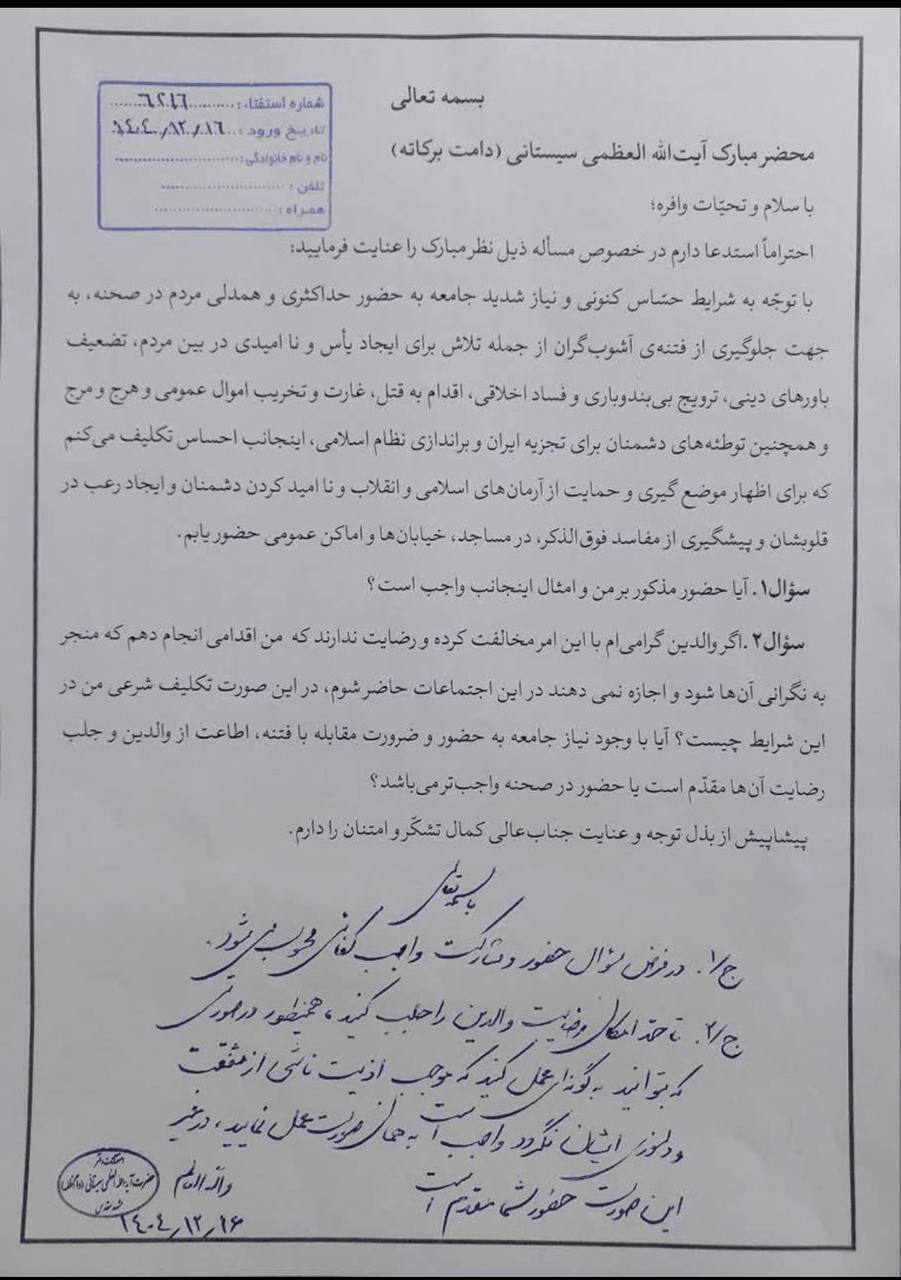 بسمه تعالی
شماره استفتاء: ۶۲۱۶
تاریخ ورود: ۱۴۰۴/۱۲/۱۶
نام و نام خانوادگی:
تلفن:
همراه:
محضر مبارک آیت‌الله العظمی سیستانی (دامت برکاته)
با سلام و تحیّات وافره؛
احتراماً استدعا دارم در خصوص مسأله ذیل نظر مبارک را عنایت فرمایید:
با توجّه به شرایط حسّاس کنونی و نیاز شدید جامعه به حضور حداکثری و همدلی مردم در صحنه، به
جهت جلوگیری از فتنه‌ی آشوب‌گران از جمله تلاش برای ایجاد یأس و نا امیدی در بین مردم، تضعیف
باورهای دینی، ترویج بی‌بندوباری و فساد اخلاقی، اقدام به قتل، غارت و تخریب اموال عمومی و هرج و مرج
و همچنین توطئه‌های دشمنان برای تجزیه ایران و براندازی نظام اسلامی، اینجانب احساس تکلیف می‌کنم
که برای اظهار موضع گیری و حمایت از آرمان‌های اسلامی و انقلاب و نا امید کردن دشمنان و ایجاد رعب در
قلوبشان و پیشگیری از مفاسد فوق‌الذکر، در مساجد، خیابان‌ها و اماکن عمومی حضور یابم.
سؤال۱. آیا حضور مذکور بر من و امثال اینجانب واجب است؟
سؤال۲. اگر والدین گرامی‌ام با این امر مخالفت کرده و رضایت ندارند که من اقدامی انجام دهم که منجر
به نگرانی آن‌ها شود و اجازه نمی دهند در این اجتماعات حاضر شوم، در این صورت تکلیف شرعی من در
این شرایط چیست؟ آیا با وجود نیاز جامعه به حضور و ضرورت مقابله با فتنه، اطاعت از والدین و جلب
رضایت آن‌ها مقدّم است یا حضور در صحنه واجب‌تر می‌باشد؟
پیشاپیش از بذل توجه و عنایت جناب‌عالی کمال تشکّر و امتنان را دارم.
باسمه تعالی
ج/۱. در فرض سؤال حضور و مشارکت واجب کفائی محسوب می‌شود.
ج/۲. تا حدّ امکان رضایت والدین را جلب کنید، همینطور در صورتی
که بتوانید به گونه‌ای عمل کنید که موجب اذیت ناشی از شفقت
و دلسوزی ایشان نگردد واجب است به همان صورت عمل نمایید، در غیر
این صورت حضور شما مقدم است
والله العالم
حضرت آیة الله العظمی سیستانی
۱۴۰۴/۱۲/۱۶